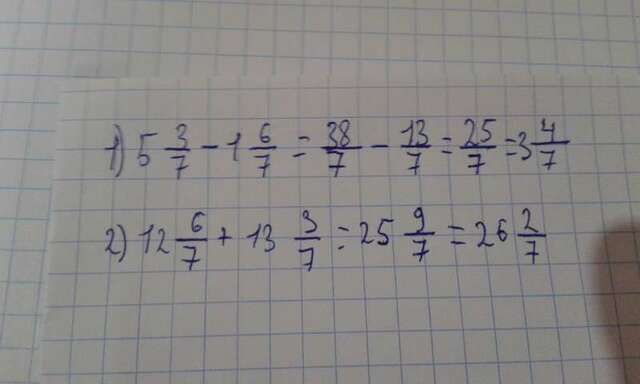 1) 5 3/7 - 1 6/7 = 38/7 - 13/7 = 25/7 = 3 4/7
2) 12 6/7 + 13 3/7 = 25 9/7 = 26 2/7